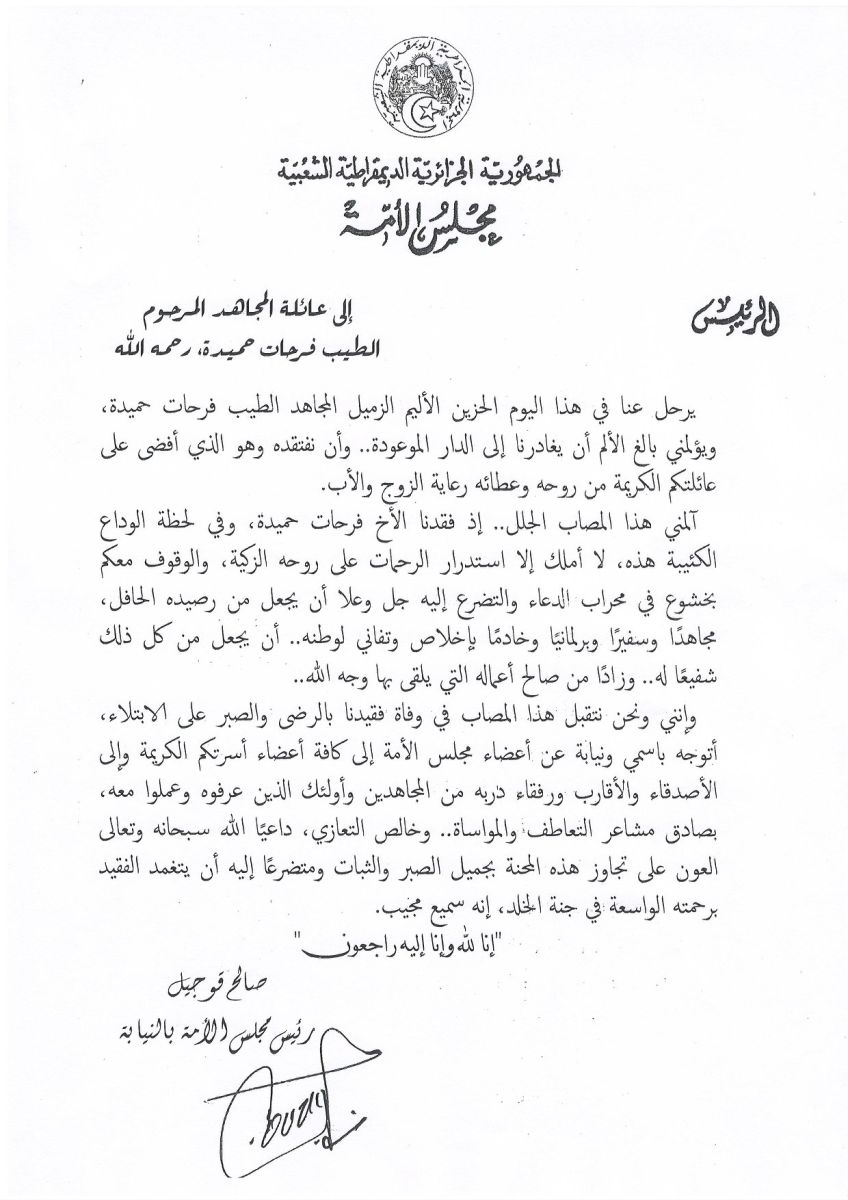 الجمهورية الجزائرية الديمقراطية الشعبية
الجمْهُوريّة الجزائريّة الديمقراطيّة الشعْبيّة
مجْلسُ الأمّة
الرئيس
إلى عائلة المجاهد المرحوم
الطيب فرحات حميدة، رحمه الله
يرحل عنا في هذا اليوم الحزين الأليم الزميل المجاهد الطيب فرحات حميدة،
ويؤلمني بالغ الألم أن يغادرنا إلى الدار الموعودة.. وأن نفتقده وهو الذي أفضى على
عائلتكم الكريمة من روحه وعطائه رعاية الزوج والأب.
آلمني هذا المصاب الجلل.. إذ فقدنا الأخ فرحات حميدة، وفي لحظة الوداع
الكئيبة هذه، لا أملك إلا استدرار الرحمات على روحه الزكية، والوقوف معكم
بخشوع في محراب الدعاء والتضرع إليه جل وعلا أن يجعل من رصيده الحافل،
مجاهدًا وسفيرًا وبرلمانيًا وخادمًا بإخلاص وتفاني لوطنه.. أن يجعل من كل ذلك
شفيعًا له.. وزادًا من صالح أعماله التي يلقى بها وجه الله..
وإنني ونحن نتقبل هذا المصاب في وفاة فقيدنا بالرضى والصبر على الابتلاء،
أتوجه باسمي ونيابة عن أعضاء مجلس الأمة إلى كافة أعضاء أسرتكم الكريمة وإلى
الأصدقاء والأقارب ورفقاء دربه من المجاهدين وأولئك الذين عرفوه وعملوا معه،
بصادق مشاعر التعاطف والمواساة.. وخالص التعازي، داعيًا الله سبحانه وتعالى
العون على تجاوز هذه المحنة بجميل الصبر والثبات ومتضرعًا إليه أن يتغمد الفقيد
برحمته الواسعة في جنة الخلد، إنه سميع مجيب.
"إنا لله وإنا إليه راجعون"
صالح قوجيل
رئيس مجلس الأمة بالنيابة